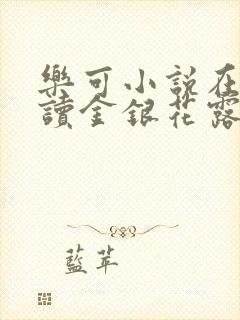 樂可小說在
讀金銀花露
藍苹